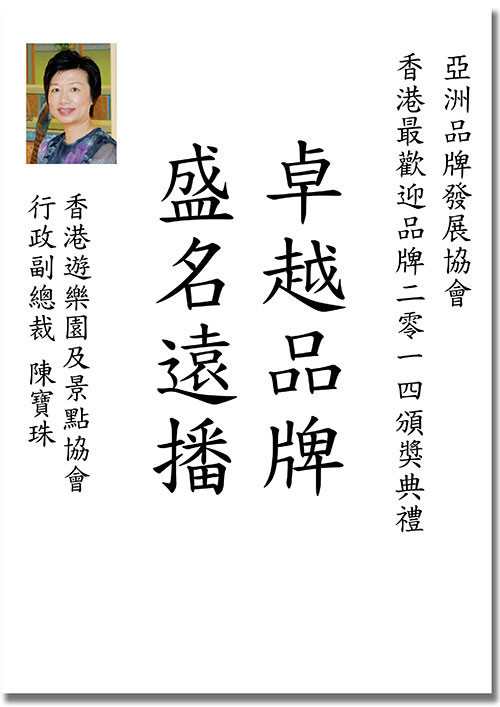 亞洲品牌發展協會
香港最歡迎品牌二零一四頒獎典禮
卓越品牌
盛名遠播
香港遊樂園及景點協會
行政副總裁 陳寶珠